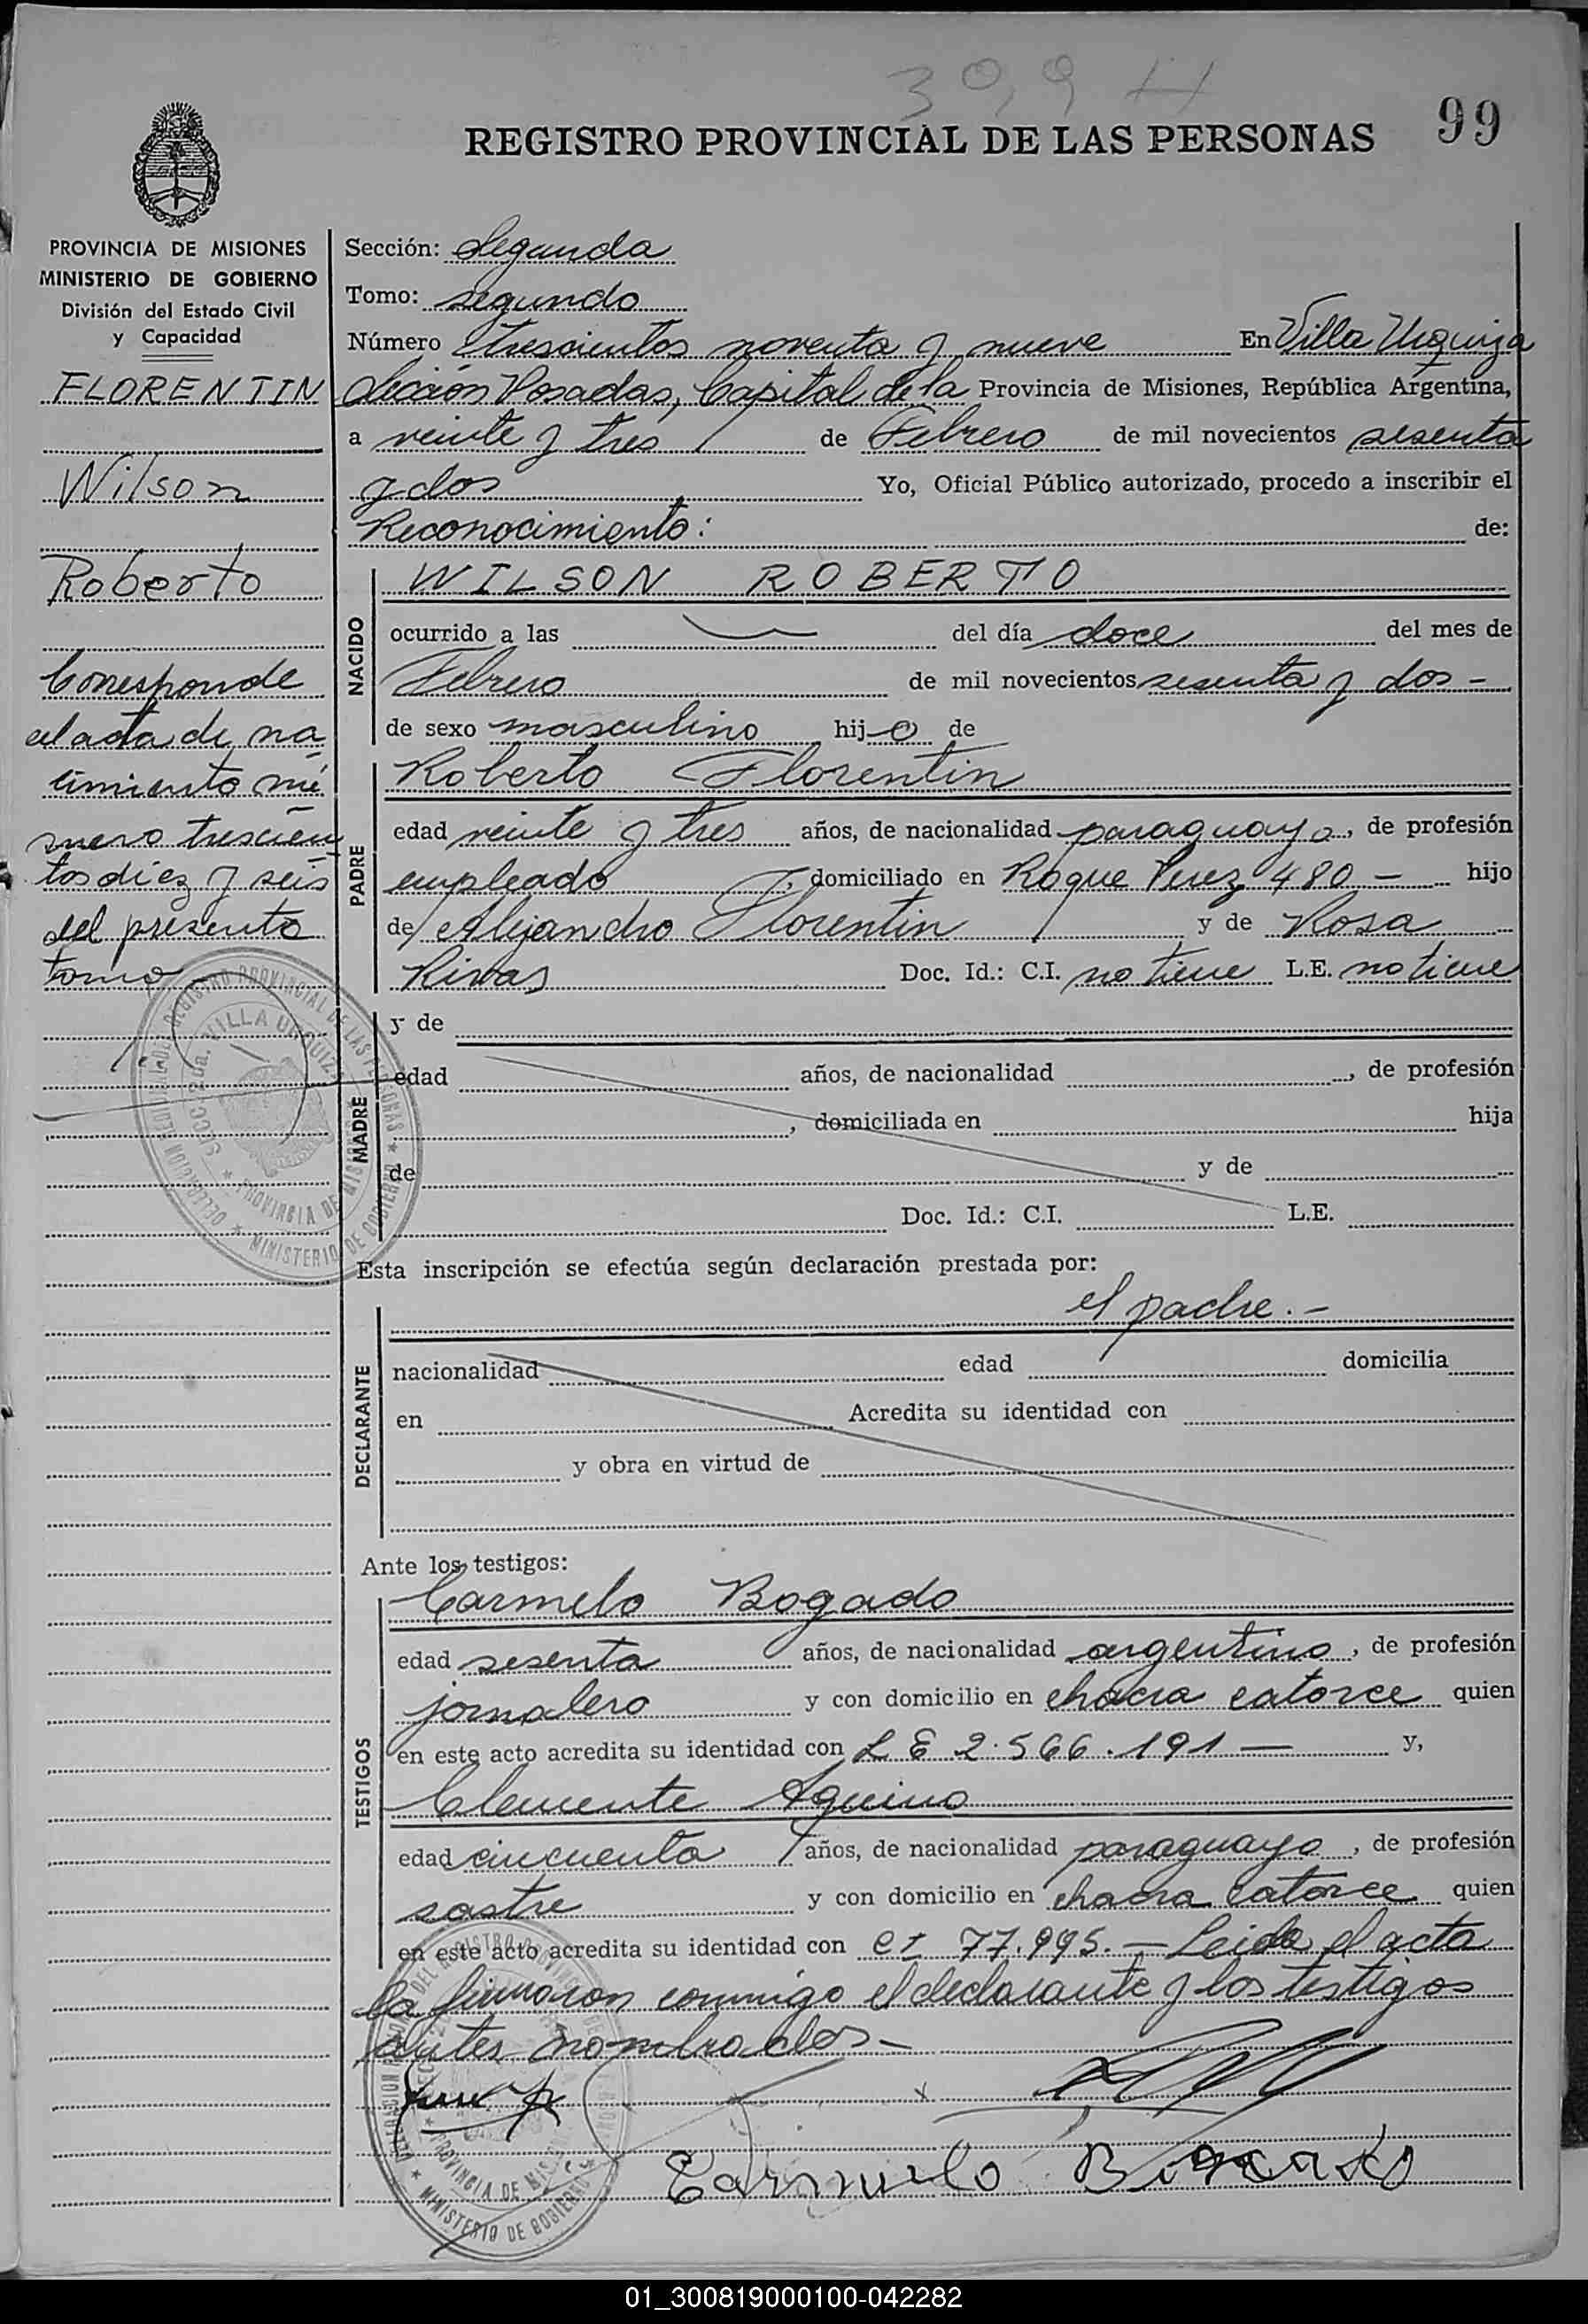 399 H
99
REGISTRO PROVINCIAL DE LAS PERSONAS
PROVINCIA DE MISIONES
MINISTERIO DE GOBIERNO
División del Estado Civil
y Capacidad
FLORENTIN
Wilson
Roberto
Corresponde
al acta de na
cimiento nú
mero trescien
tos diez y seis
del presente
tomo
Sección: Segunda
Tomo: segundo
Número trescientos noventa y nueve En Villa Urquiza
Sección Posadas, Capital de la Provincia de Misiones, República Argentina,
a veinte y tres de Febrero de mil novecientos sesenta
y dos Yo, Oficial Público autorizado, procedo a inscribir el
Reconocimiento: de:
NACIDO
WILSON ROBERTO
ocurrido a las del día doce del mes de
Febrero de mil novecientos sesenta y dos -
de sexo masculino hijo de
PADRE
Roberto Florentin
edad veinte y tres años, de nacionalidad paraguaya, de profesión
empleado, domiciliado en Roque Perez 480 - hijo
de Alejandro Florentin y de Rosa
Rivas Doc. Id.: C.I. no tiene L.E. no tiene
MADRE
y de
edad años, de nacionalidad , de profesión
, domiciliada en hija
de y de
Doc. Id.: C.I. L.E.
Esta inscripción se efectúa según declaración prestada por:
el padre.-
DECLARANTE
nacionalidad edad domicilia
en Acredita su identidad con
y obra en virtud de
Ante los testigos:
TESTIGOS
Carmelo Bogado
edad sesenta años, de nacionalidad argentino, de profesión
jornalero y con domicilio en chacra catorce quien
en este acto acredita su identidad con L E 2.566.191 — y,
Clemente Aquino
edad cincuenta años, de nacionalidad paraguayo, de profesión
sastre y con domicilio en chacra catorce quien
en este acto acredita su identidad con CI 77.995.- Leida el acta
la firmaron conmigo el declarante y los testigos
antes nombrados-
Carmelo Bogado
VILLA URQUIZA
PROVINCIA DE MISIONES
MINISTERIO DE GOBIERNO
PROVINCIA DE MISIONES
MINISTERIO DE GOBIERNO
01_300819000100-042282